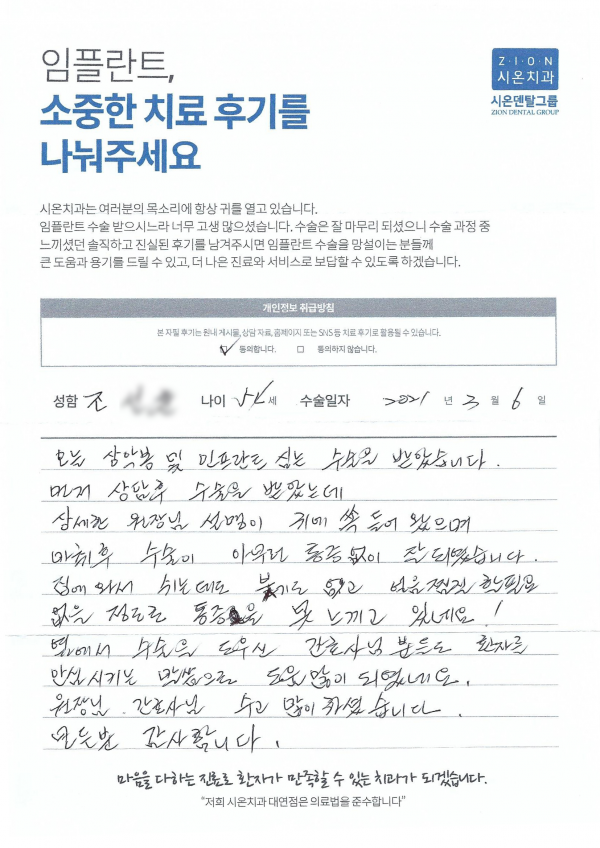 임플란트,
소중한 치료 후기를
나눠주세요
Z·I·O·N
시온치과
시온덴탈그룹
ZION DENTAL GROUP
시온치과는 여러분의 목소리에 항상 귀를 열고 있습니다.
임플란트 수술 받으시느라 너무 고생 많으셨습니다. 수술은 잘 마무리 되셨으니 수술 과정 중
느끼셨던 솔직하고 진실된 후기를 남겨주시면 임플란트 수술을 망설이는 분들께
큰 도움과 용기를 드릴 수 있고, 더 나은 진료와 서비스로 보답할 수 있도록 하겠습니다.
개인정보 취급방침
본 자필 후기는 원내 게시물, 상담 자료, 홈페이지 또는 SNS 등 치료 후기로 활용될 수 있습니다.
동의합니다. 동의하지 않습니다.
성함 조 나이 세 수술일자 2021 년 3 월 6 일
오늘 상악동 및 인프란트 심는 수술을 받았습니다.
먼저 상담후 수술을 받았는데
상세한 원장님 설명이 귀에 쏙 들어 왔으며
마취후 수술이 아무런 통증없이 잘 되었습니다.
집에 와서 쉬는데도 붓기도 없고 얼음찜질 할필요
없을 정도로 통증을 못 느끼고 있네요!
옆에서 수술을 도우신 간호사님 분들도 환자를
안심시키는 말씀으로 도움많이 되었네요.
원장님. 간호사님 수고 많이 하셨습니다.
모든분 감사합니다.
마음을 다하는 진료로 환자가 만족할 수 있는 치과가 되겠습니다.
“저희 시온치과 대연점은 의료법을 준수합니다”